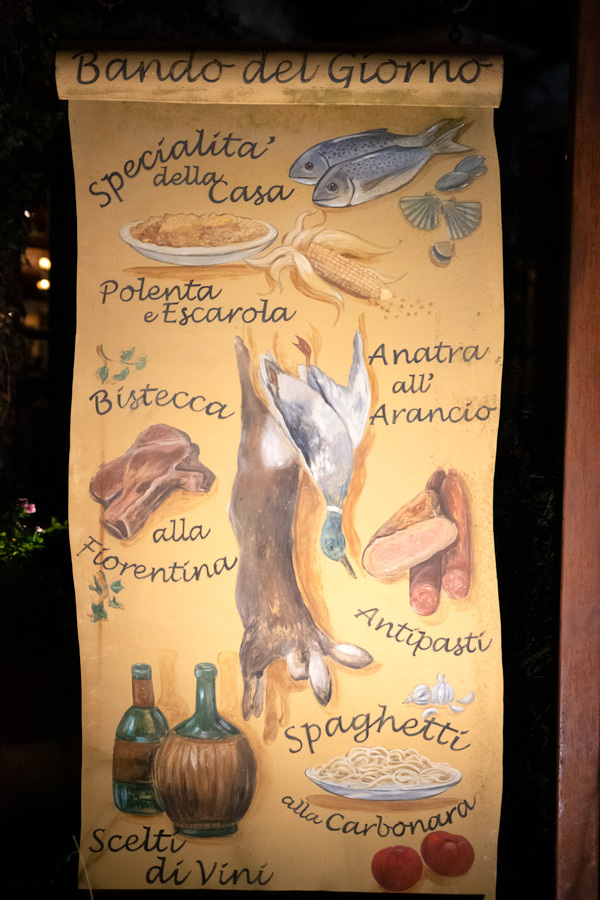 Bando del Giorno
Specialita'
della
Casa
Polenta
e Escarola
Anatra
all'
Arancio
Bistecca
alla
Fiorentina
Antipasti
Spaghetti
alla Carbonara
Scelti
di Vini